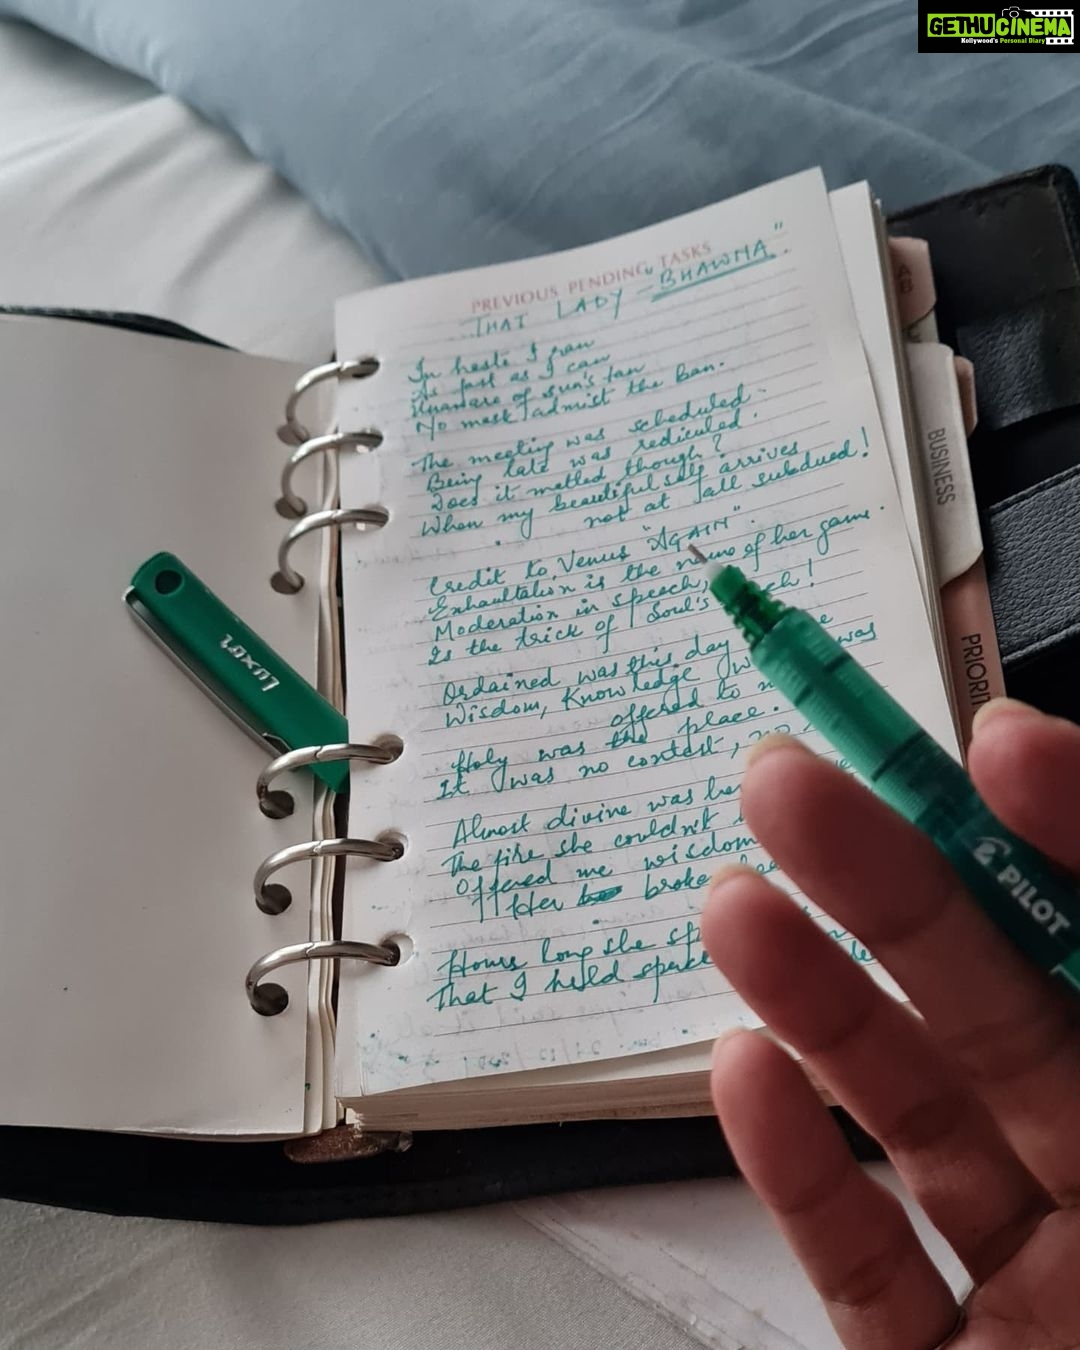 GETHU CINEMA
Kollywood's Personal Diary
PREVIOUS PENDING TASKS
THAT LADY - "BHAWNA".
In haste I ran
As fast as I can
Unaware of sun's tan
No mask admist the ban.
The meeting was scheduled.
Being late was rediculed.
Does it matted though?
When my beautiful self arrives
not at all subdued!
Credit to Venus "AGAIN".
Exhaultation is the name of her game.
Moderation in speech,
Is the trick of Soul's
Ordained was this day
Wisdom, Knowledge was
offered to
Holy was the place.
It was no contest, no
Almost divine was her
The fire she couldn't
Offered me wisdom
Her broken
Hours long she
That I held space
AB
BUSINESS
PRIORIT
Luxor
PILOT